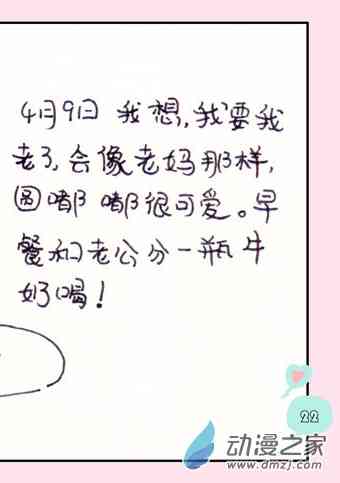 4月9日 我想,我要我
老了,会像老妈那样,
圆嘟嘟很可爱。早
餐和老公分一瓶牛
奶喝!
22
动漫之家
www.dmzj.com